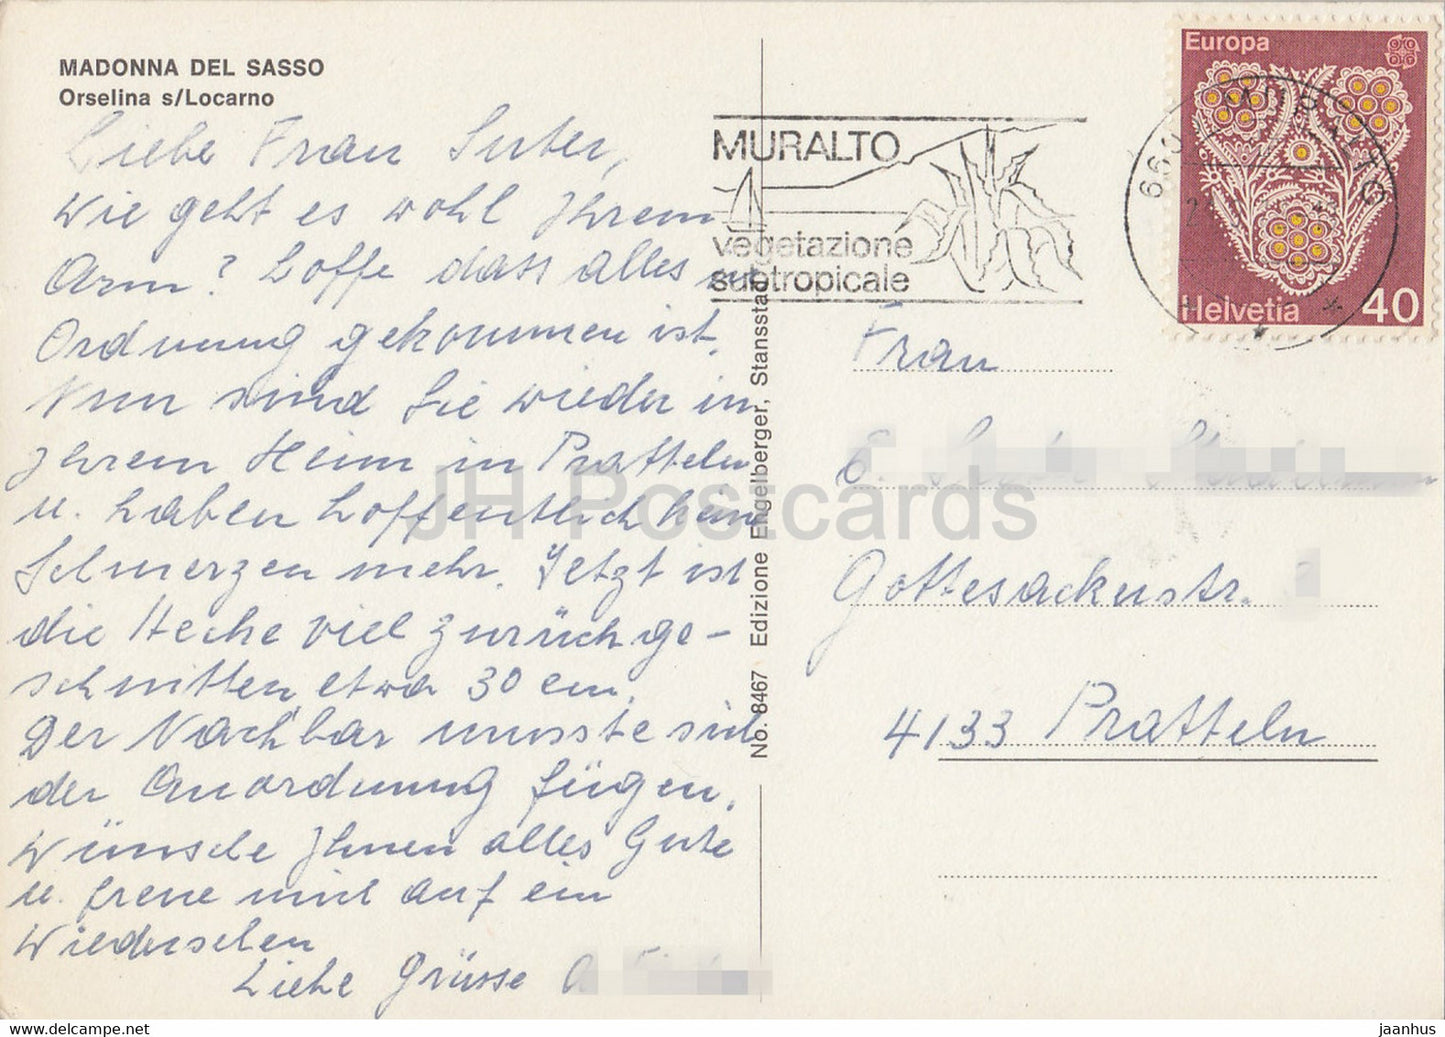 MADONNA DEL SASSO
Orselina s/Locarno
Liebe Frau Suter,
Wie geht es wohl Ihrem
Arm? Hoffe dass alles in
Ordnung gekommen ist.
Nun sind Sie wieder in
Ihrem Heim in Pratteln
u. haben hoffentlich keine
Schmerzen mehr. Jetzt ist
die Hecke viel zurückge-
schnitten etwa 30 cm.
Der Nachbar musste sich
der Anordnung fügen.
Wünsche Ihnen alles Gute
u. freue mich auf ein
Wiedersehen
Liebe Grüsse A
No. 8467 Edizione Engelberger, Stansstad
MURALTO
vegetazione
subtropicale
Europa
Helvetia 40
Frau
E.
Gottesackerstr.
4133 Pratteln
JH Postcards
www.delcampe.net
jaanhus